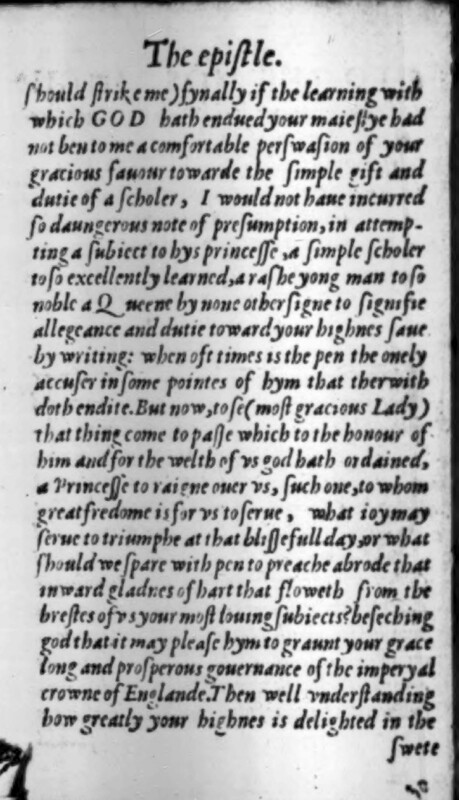 The epiſtle.
ſhould ſtrike me) fynally if the learning with
which GOD hath endued your maieſtye had
not ben to me a comfortable perſwaſion of your
gracious fauour towarde the ſimple gift and
dutie of a ſcholer, I would not haue incurred
ſo daungerous note of preſumption, in attemp-
ting a ſubiect to hys princeſſe, a ſimple ſcholer
to ſo excellently learned, a raſhe yong man to ſo
noble a Queene by none other ſigne to ſignifie
allegeance and dutie toward your highnes ſaue
by writing: when oft times is the pen the onely
accuſer in ſome pointes of hym that therwith
doth endite. But now, to ſe (moſt gracious Lady)
that thing come to paſſe which to the honour of
him and for the welth of vs god hath ordained,
a Princeſſe to raigne ouer vs, ſuch one, to whom
great fredome is for vs to ſerue, what ioy may
ſerue to triumphe at that bliſſefull day, or what
ſhould we ſpare with pen to preache abrode that
inward gladnes of hart that floweth from the
breſtes of vs your moſt louing ſubiects? beſeching
god that it may pleaſe hym to graunt your grace
long and proſperous gouernance of the imperyal
crowne of Englande. Then well vnderſtanding
how greatly your highnes is delighted in the
ſwete